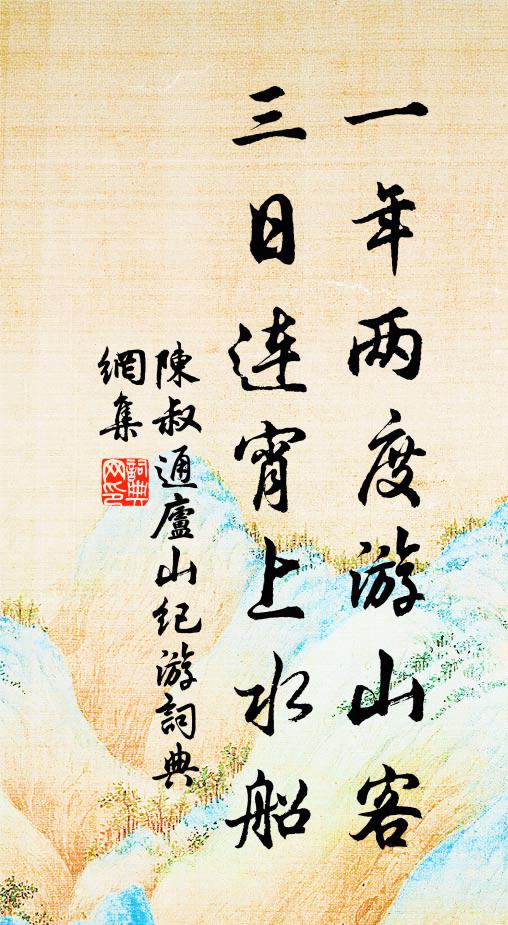 一年两度游山客
三日连宵上水船
陳叔通廬山纪游詞典
網集
詞典網印